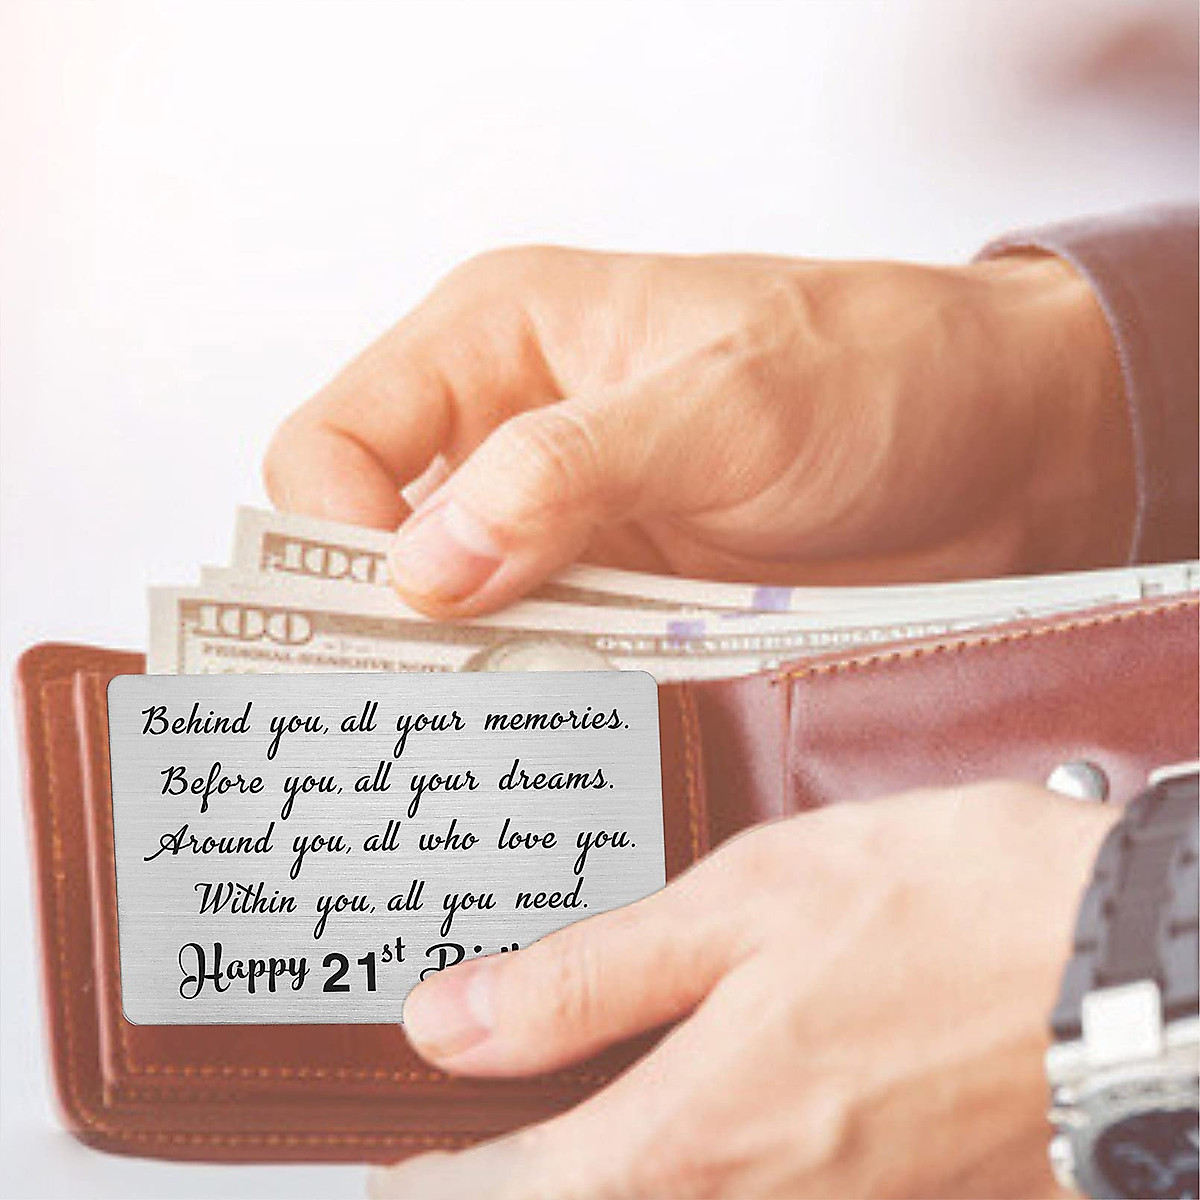 100
100
FEDERAL RESERVE NOTE
ONE HUNDRED DOLLARS
Behind you, all your memories.
Before you, all your dreams.
Around you, all who love you.
Within you, all you need.
Happy 21st